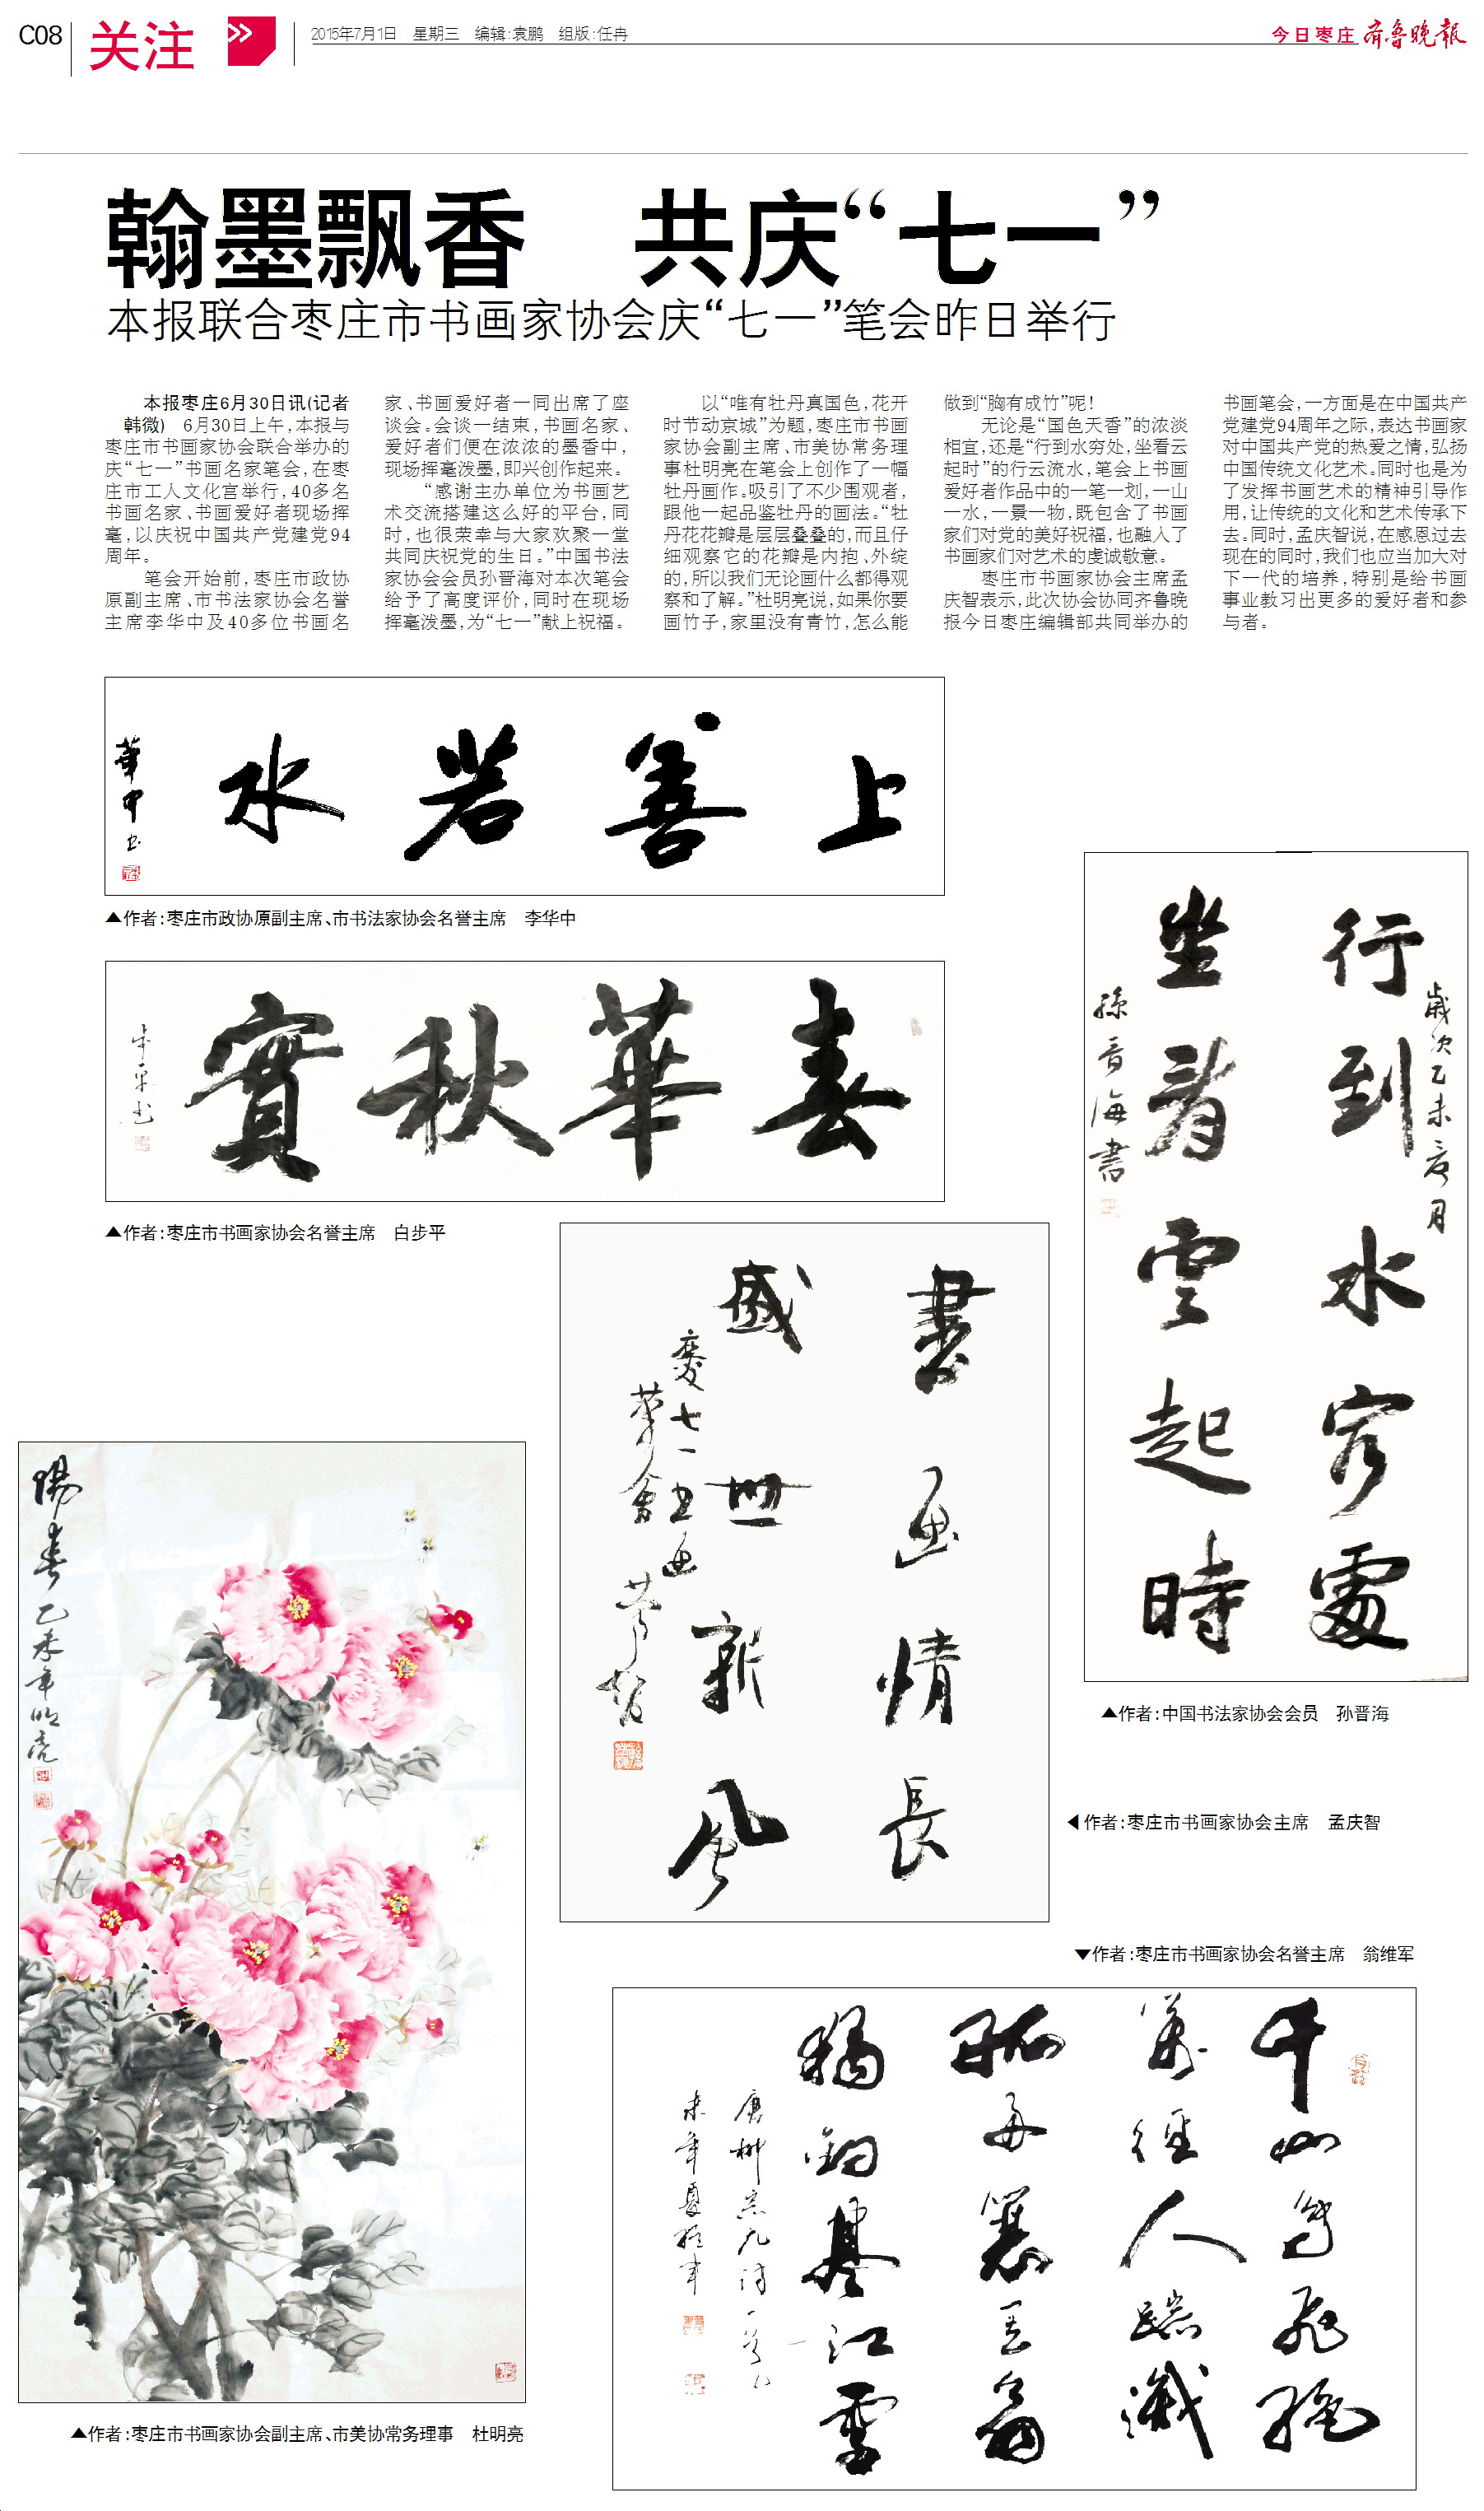 C08
关注
2015年7月1日 星期三 编辑:袁鹏 组版:任冉
今日枣庄 齐鲁晚报
翰墨飘香 共庆“七一”
本报联合枣庄市书画家协会庆“七一”笔会昨日举行
本报枣庄6月30日讯(记者
韩微) 6月30日上午,本报与
枣庄市书画家协会联合举办的
庆“七一”书画名家笔会,在枣
庄市工人文化宫举行,40多名
书画名家、书画爱好者现场挥
毫,以庆祝中国共产党建党94
周年。
笔会开始前,枣庄市政协
原副主席、市书法家协会名誉
主席李华中及40多位书画名
家、书画爱好者一同出席了座
谈会。会谈一结束,书画名家、
爱好者们便在浓浓的墨香中,
现场挥毫泼墨,即兴创作起来。
“感谢主办单位为书画艺
术交流搭建这么好的平台,同
时,也很荣幸与大家欢聚一堂
共同庆祝党的生日。”中国书法
家协会会员孙晋海对本次笔会
给予了高度评价,同时在现场
挥毫泼墨,为“七一”献上祝福。
以“唯有牡丹真国色,花开
时节动京城”为题,枣庄市书画
家协会副主席、市美协常务理
事杜明亮在笔会上创作了一幅
牡丹画作。吸引了不少围观者,
跟他一起品鉴牡丹的画法。“牡
丹花花瓣是层层叠叠的,而且仔
细观察它的花瓣是内抱、外绽
的,所以我们无论画什么都得观
察和了解。”杜明亮说,如果你要
画竹子,家里没有青竹,怎么能
做到“胸有成竹”呢!
无论是“国色天香”的浓淡
相宜,还是“行到水穷处,坐看云
起时”的行云流水,笔会上书画
爱好者作品中的一笔一划,一山
一水,一景一物,既包含了书画
家们对党的美好祝福,也融入了
书画家们对艺术的虔诚敬意。
枣庄市书画家协会主席孟
庆智表示,此次协会协同齐鲁晚
报今日枣庄编辑部共同举办的
书画笔会,一方面是在中国共产
党建党94周年之际,表达书画家
对中国共产党的热爱之情,弘扬
中国传统文化艺术。同时也是为
了发挥书画艺术的精神引导作
用,让传统的文化和艺术传承下
去。同时,孟庆智说,在感恩过去
现在的同时,我们也应当加大对
下一代的培养,特别是给书画
事业教习出更多的爱好者和参
与者。
上善若水
華中书
▲作者:枣庄市政协原副主席、市书法家协会名誉主席 李华中
春華秋實
步平书
▲作者:枣庄市书画家协会名誉主席 白步平
歲次乙未夏月
行到水穷處
坐看雲起時
孫晋海書
▲作者:中国书法家协会会员 孙晋海
書画情長
盛世新风
慶七一书画
笔會
◀作者:枣庄市书画家协会主席 孟庆智
陽春
乙未年明亮
▲作者:枣庄市书画家协会副主席、市美协常务理事 杜明亮
▼作者:枣庄市书画家协会名誉主席 翁维军
千山鸟飛絕
萬徑人踪滅
孤舟蓑笠翁
獨钓寒江雪
唐柳宗元诗一首
未年夏维军